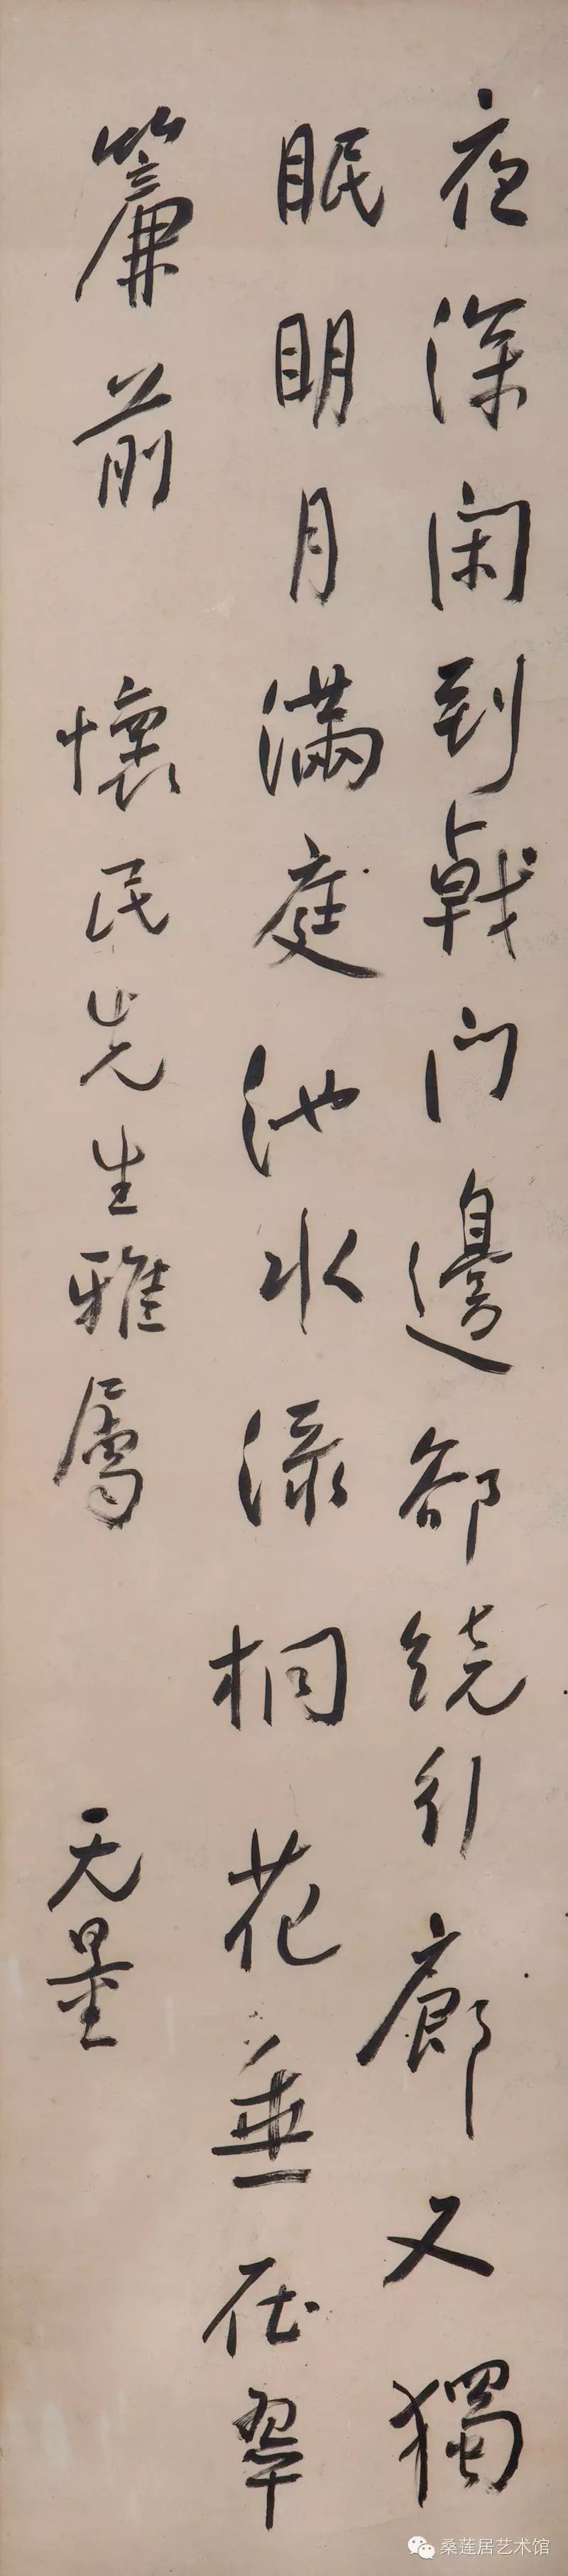 夜深闲到戟门邊卻绕行廊又獨
眠明月满庭池水渌桐花垂在翠
簾前
懷民先生雅屬
无量
桑莲居艺术馆